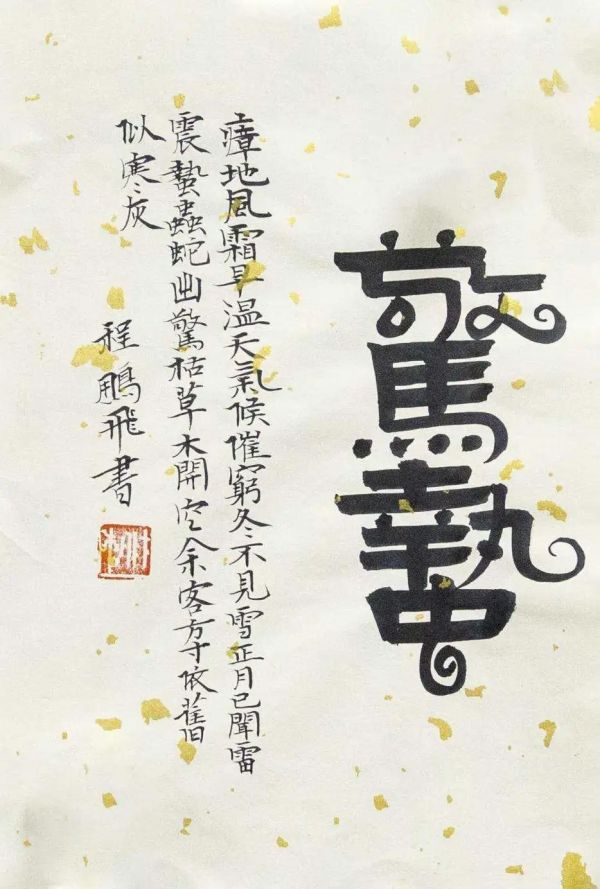 驚蟄
瘴地風霜早温天氣候催窮冬不見雪正月已聞雷
震蟄蟲蛇出驚枯草木開空余客方寸依舊
似寒灰
程鵬飛書